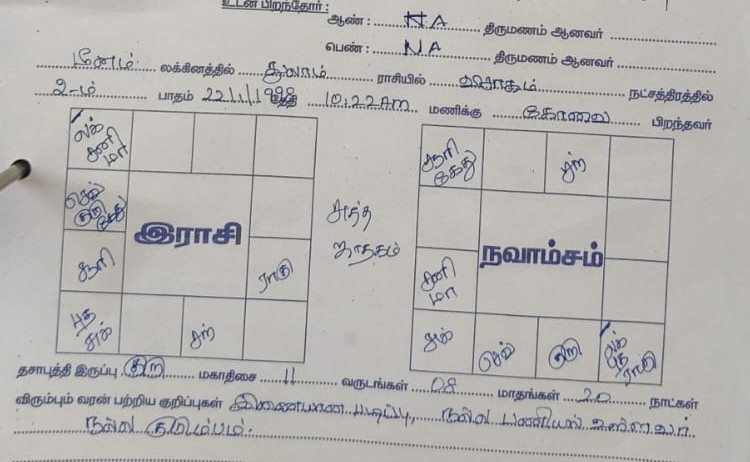 உடன் பிறந்தோர்:
ஆண் : NA திருமணம் ஆனவர்
பெண் : NA திருமணம் ஆனவர்
மீனம் லக்கினத்தில் துலாம் ராசியில் விசாகம் நட்சத்திரத்தில்
2-ம் பாதம் 22/1/1998 தேதி 10:22AM மணிக்கு கோவை பிறந்தவர்
லக் சனி மா
செவ் குரு கேது
சூரி
ராகு
புத சுக்
சந்
இராசி
சுத்த ஜாதகம்
சூரி கேது
சந்
சனி மா
சுக்
செவ்
குரு
லக் புத ராகு
நவாம்சம்
தசாபுத்தி இருப்பு குரு மகாதிசை 11 வருடங்கள் 08 மாதங்கள் 20 நாட்கள்
விரும்பும் வரன் பற்றிய குறிப்புகள் இணையான படிப்பு, நல்ல பணியில் உள்ளவர்.
நல்ல குடும்பம்.